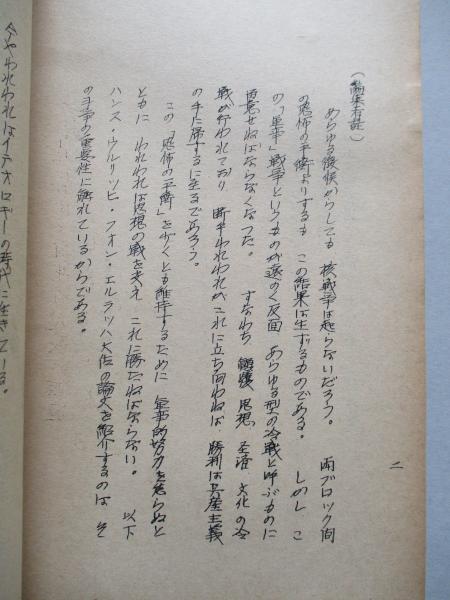 二
(編集者註)
あらゆる徴候からしても 核戦争は起らないだろう。 両ブロック間
の恐怖の平衡よりするも この結果は生ずるものである。 しかし こ
の「軍事」戦争というものが遠のく反面 あらゆる型の冷戦と呼ぶものに
留意せねばならなくなった。 すなわち 諜報、思想、経済 文化の冷
戦が行われており 断乎われわれがこれに立ち向わねば 勝利は共産主義
の手に帰するに至るであろう。
この「恐怖の平衡」を少くとも維持するために 軍事的努力を怠らぬと
ともに われわれは思想の戦を交え これに勝たねばならない。 以下
ハンス・ウルリッヒ・フォン・エルラッハ大佐の論文を紹介するのは そ
の事の重要性に触れているからである。
今やわれわれはイデオロギーの時代に生きている。